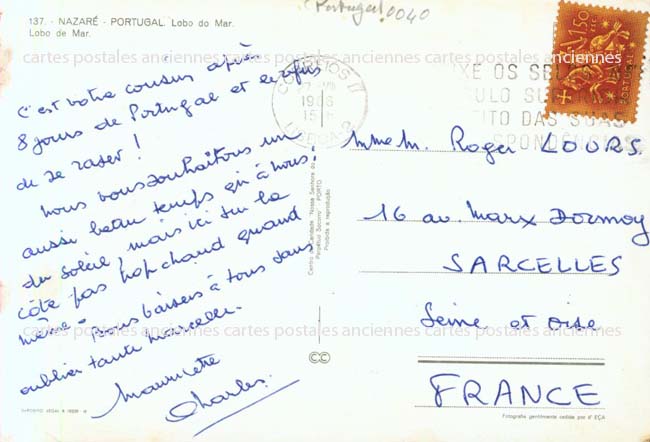 137. - NAZARÉ - PORTUGAL. Lobo do Mar.
Lobo de Mar.
Portugal 0040
cartes postales anciennes cartes postales anciennes cartes postales anciennes
C'est votre cousin après
8 jours de Portugal et
de se raser !
Nous vous souhaitons un
aussi beau temps qu'à nous :
du soleil, mais ici sur la
côte pas trop chaud quand
même -
Nous baisers à tous sans
oublier tante Marcelle.
Mauricette
Charles.
CORREIOS
LISBOA
1.50
PORTUGAL
XE OS
DAS SUAS
Centro de Caridade "Nossa Senhora do
Perpétuo Socorro" PORTO
Proibida a reprodução
Mme M. Roger LOURS.
16 av. Marx Dormoy
SARCELLES
Seine et oise
FRANCE
cartes postales anciennes cartes postales anciennes cartes postales anciennes
Fotografia gentilmente cedida por d' EÇA